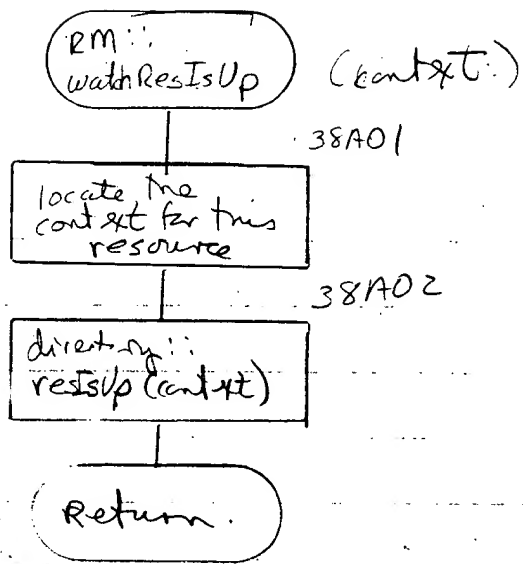 RM::
watchResIsUp
(context:)
38A01
locate the
context for this
resource
38A02
directory::
resIsUp (context)
Return.